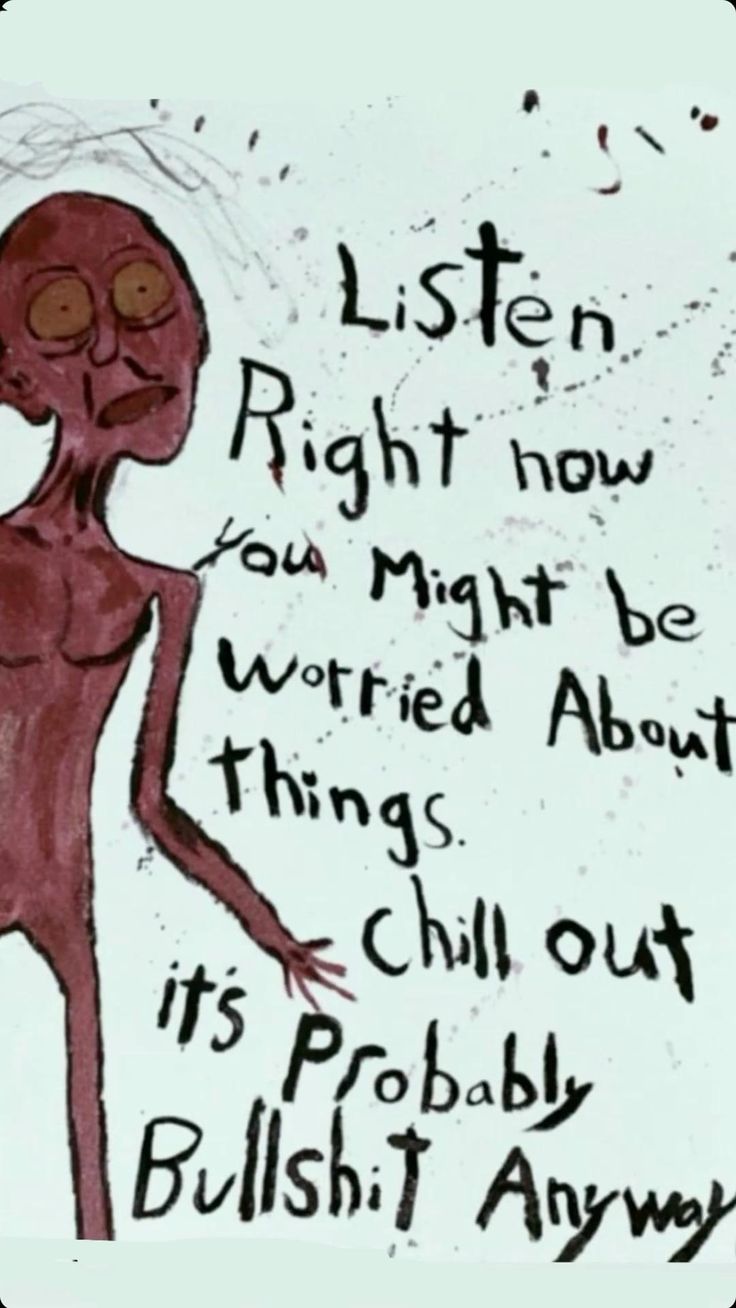 Listen
Right now
you Might be
worried About
things.
chill out
it's Probably
Bullshit Anyway